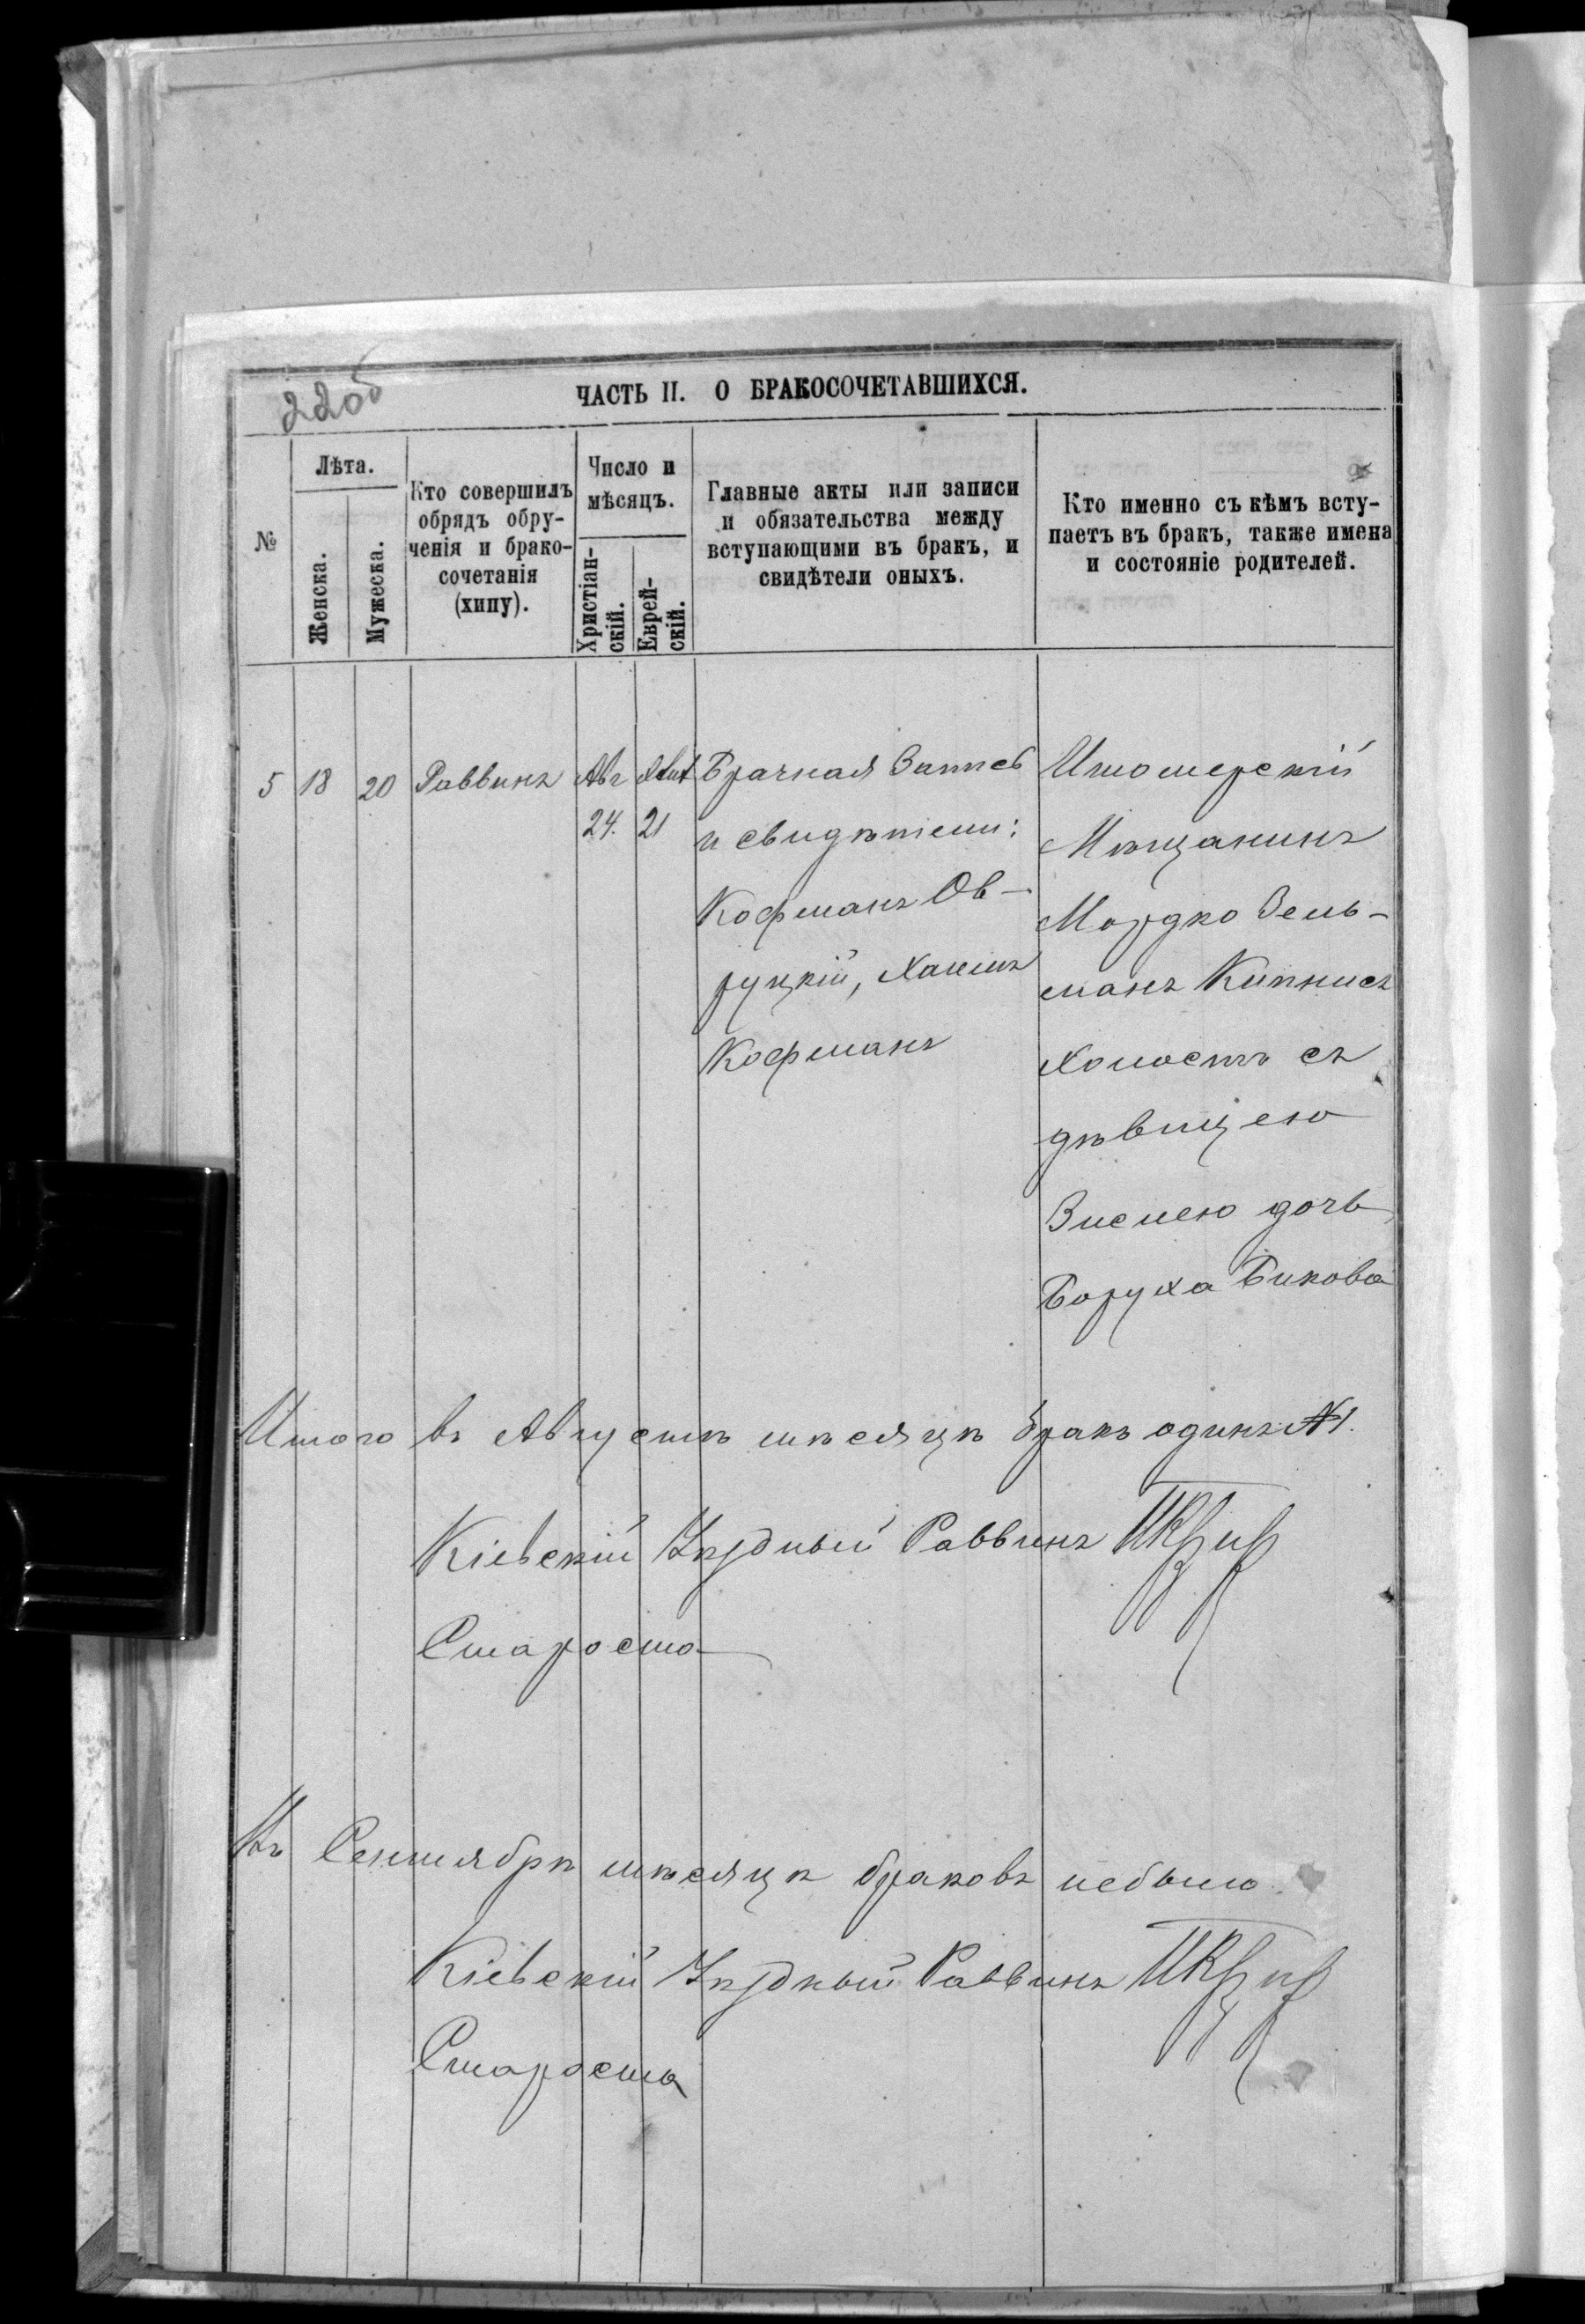 220б
ЧАСТЬ II. О БРАКОСОЧЕТАВШИХСЯ.
№
Лѣта.
Женска.
Мужеска.
Кто совершилъ
обрядъ обру-
ченія и брако-
сочетанія
(хипу).
Число и
мѣсяцъ.
Христіан-
скій.
Еврей-
скій.
Главные акты или записи
и обязательства между
вступающими въ бракъ, и
свидѣтели оныхъ.
Кто именно съ кѣмъ всту-
паетъ въ бракъ, также имена
и состояніе родителей.
5 18 20 Раввинъ Авг
24. 21
Брачная Запись
и свидѣтели:
Кофманъ Ов-
руцкій, Хаимъ
Кофманъ
Мѣщанинъ
Мордко Зель-
манъ Кипнисъ
холостъ съ
дѣвицею
Зислею дочь
Боруха Бикова
Итого въ Августѣ мѣсяцѣ бракъ одинъ №1.
Кіевскій Уѣздный Раввинъ
Староста
Въ Сентябрѣ мѣсяцѣ браковъ небыло
Кіевскій Уѣздный Раввинъ
Староста